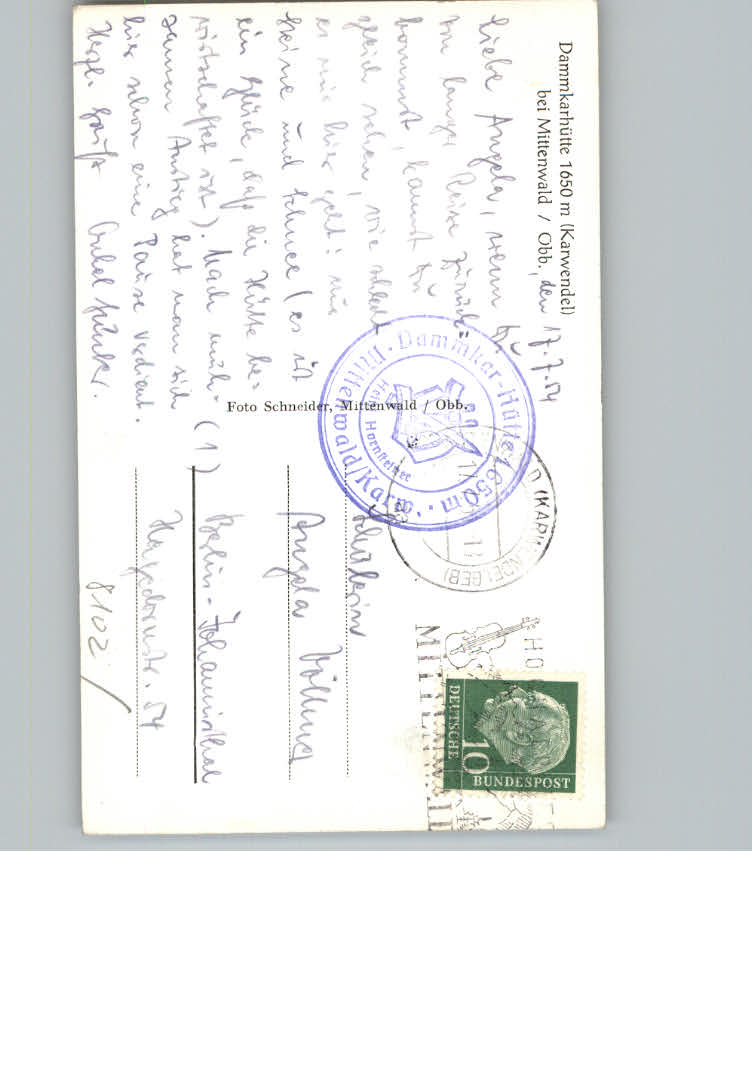 Dammkarhütte 1650 m (Karwendel)
bei Mittenwald / Obb., den 17.7.54
Liebe Angela, wenn Du
von langer Reise zurück-
kommst, kannst Du
gleich sehen, wie schlecht
es mir hier geht! Nur
Steine und Schnee (es ist
ein Glück, daß die Hütte be-
wirtschaftet ist). Nach müh-
samen Anstieg hat man sich
hier schon eine Pause verdient.
Herzl. Grüße
Foto Schneider, Mittenwald / Obb.
Dammkar-Hütte 1650 m
Mittenwald/Karw.
Fräulein
Angela
(1) Berlin-Johannisthal
54
8102
MITTENWALD
DEUTSCHE
BUNDESPOST
10